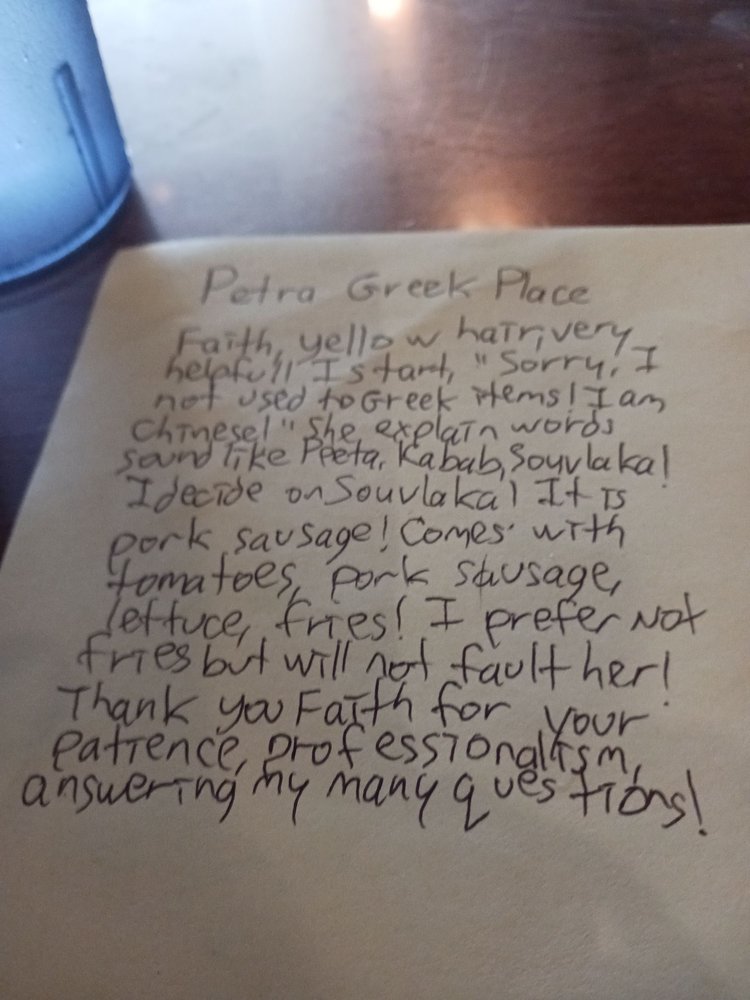 Petra Greek Place
Faith, yellow hair, very
helpful! I start, "Sorry, I
not used to Greek items! I am
Chinese!" She explain words
sound like Peeta, Kabab, Souvlaka!
I decide on Souvlaka! It is
pork sausage! Comes with
tomatoes, pork sausage,
lettuce, fries! I prefer not
fries but will not fault her!
Thank you Faith for your
patience, professionalism,
answering my many questions!